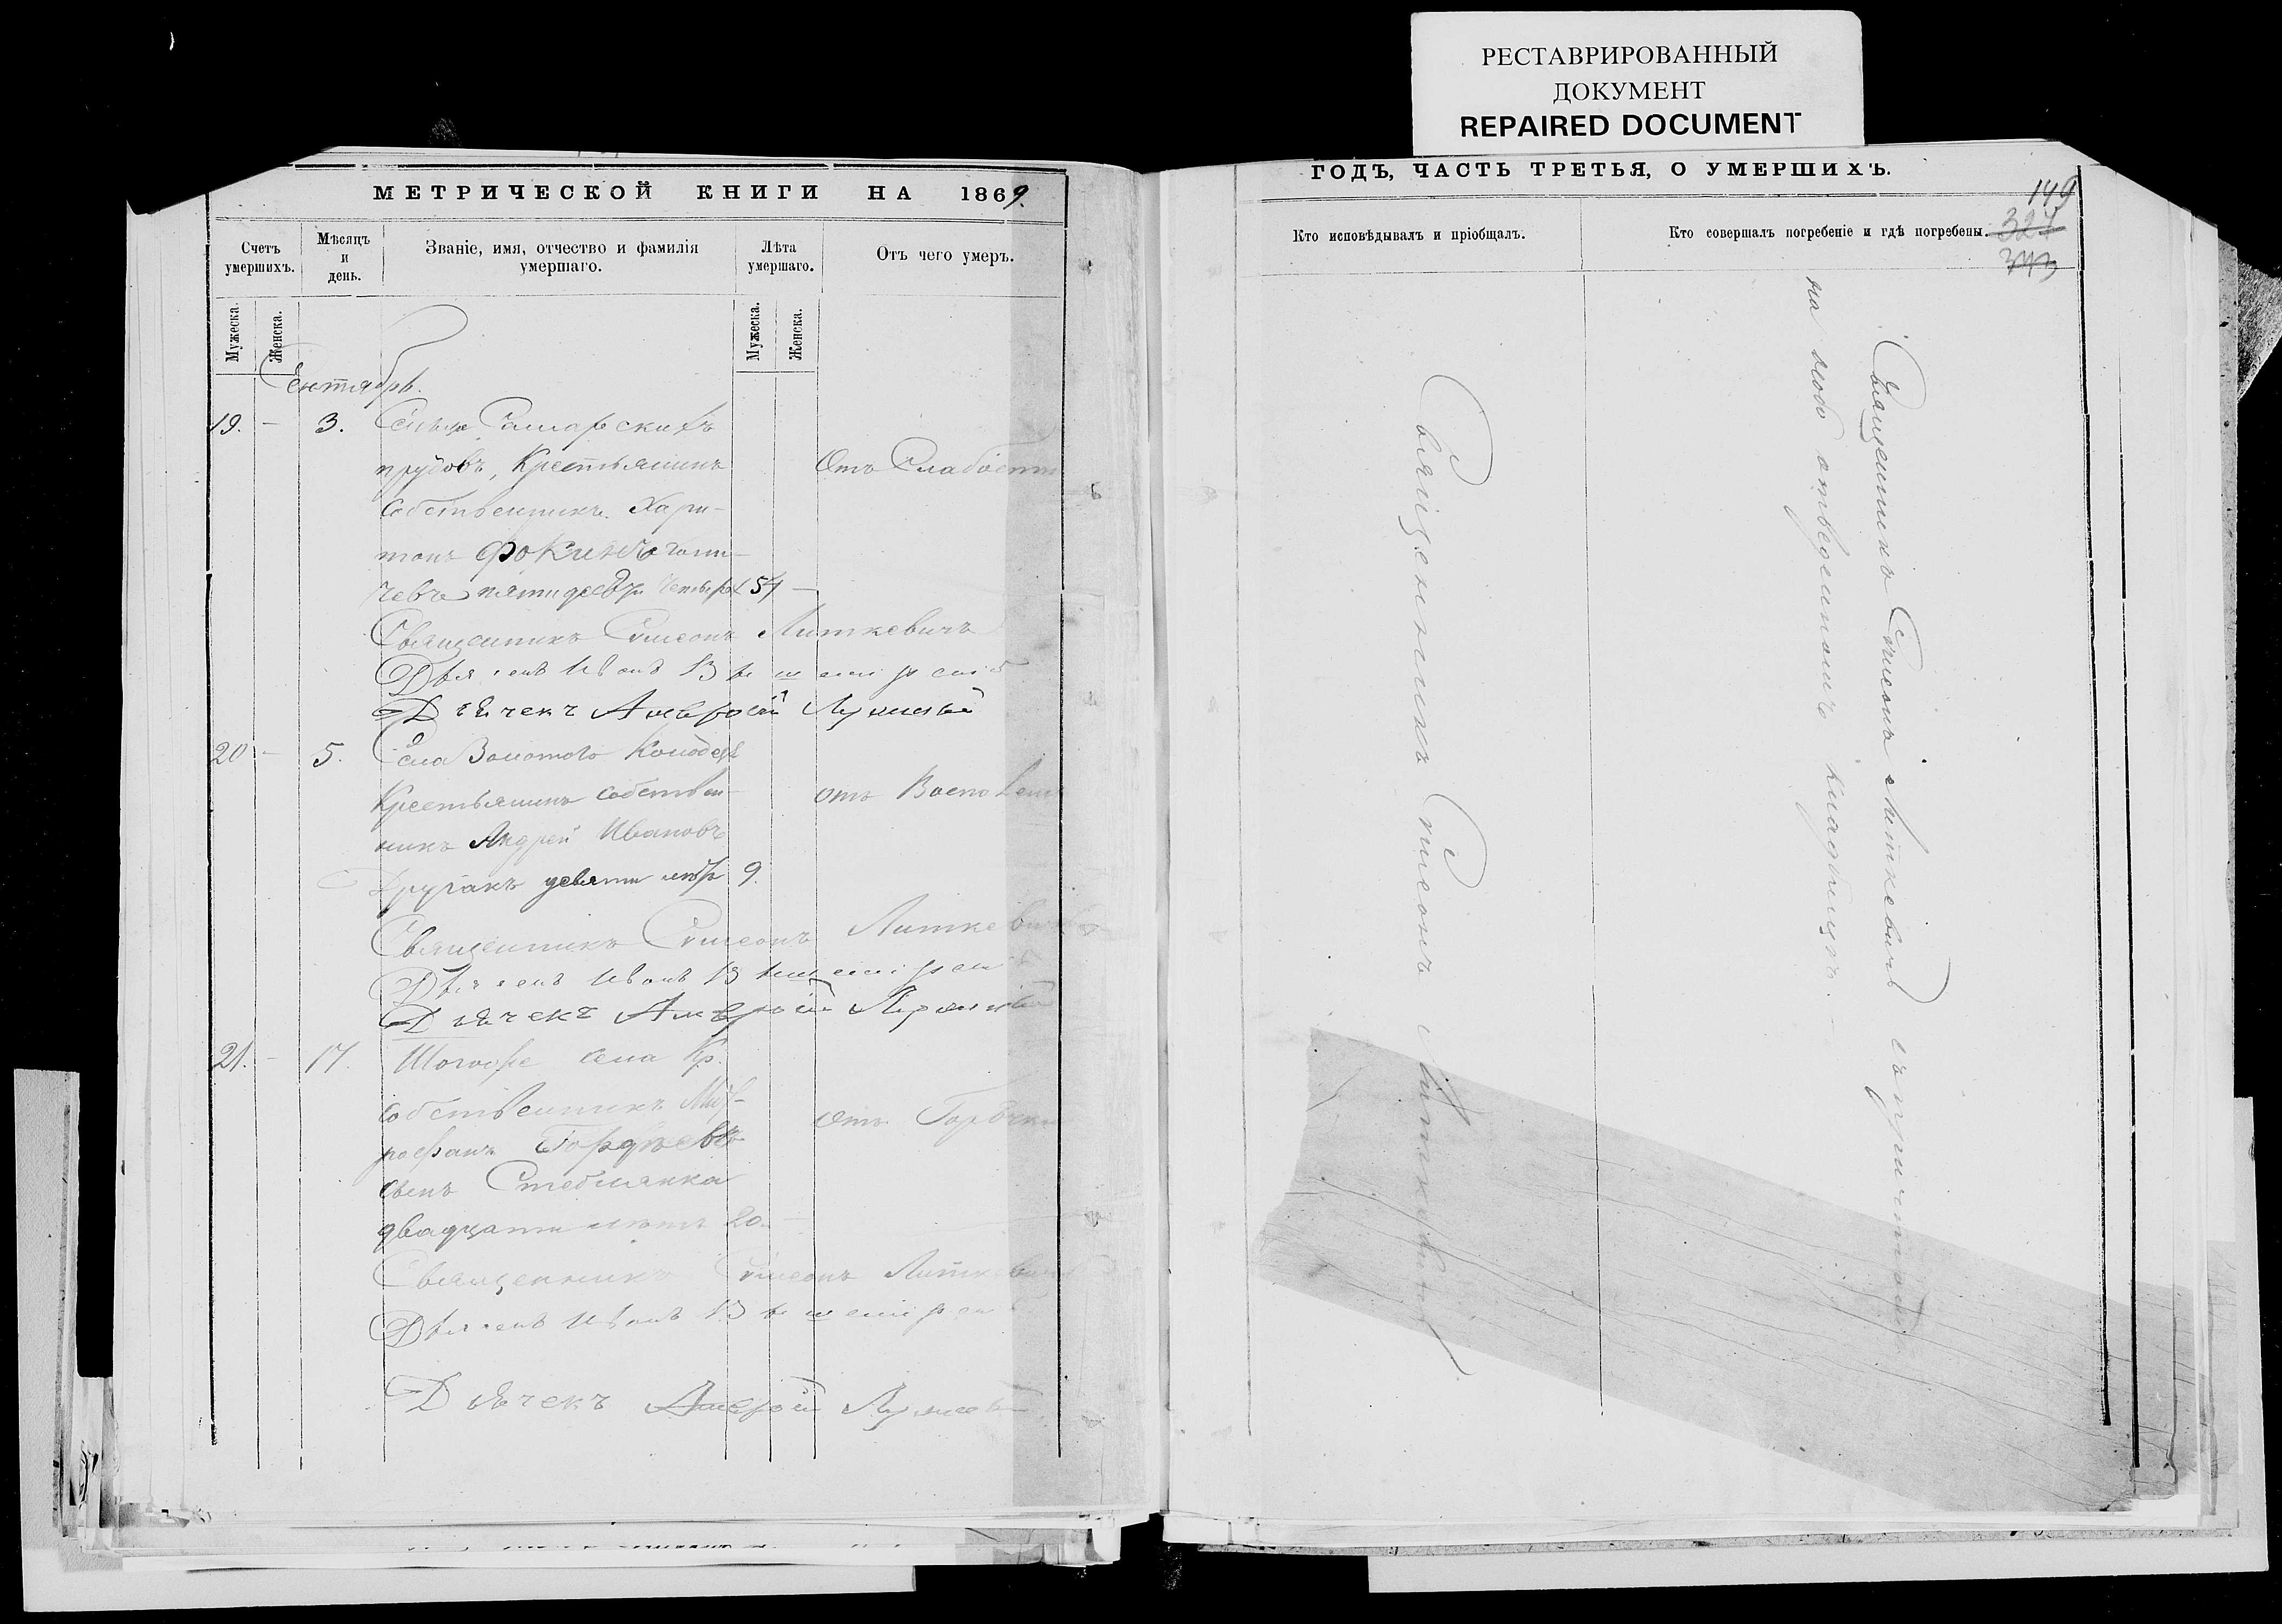 РЕСТАВРИРОВАННЫЙ
ДОКУМЕНТ
REPAIRED DOCUMENT
МЕТРИЧЕСКОЙ КНИГИ НА 1869.
Счетъ умершихъ.
Мѣсяцъ и день.
Званіе, имя, отчество и фамилія умершаго.
Лѣта умершаго.
Отъ чего умеръ.
Мужеска.
Женска.
Мужеска.
Женска.
Сентябрь.
19. – 3. Самарскихъ
прудовъ, Крестьянинъ Отъ Слабости
Собственникъ Хари-
тонъ Фокинъ
пятидесяти четырех 54 –
Священникъ Симеонъ Литкевичъ
Дьячекъ Амвросій
20 – 5. Села Золотого Колодезя
Крестьянинъ собствен- отъ Воспален
никъ Андрей Ивановъ
Другакъ девяти лѣтъ 9.
Священникъ Симеонъ Литкевичъ
Дьячекъ Амвросій
21. – 17. села Кр.
собственникъ Мит- отъ Горячки
рофанъ Гордѣевъ
сынъ Стеблянка
двадцати лѣтъ 20. –
Священникъ Симеонъ Литкевичъ
Дьячекъ Амвросій
ГОДЪ, ЧАСТЬ ТРЕТЬЯ, О УМЕРШИХЪ.
149
327
343
Кто исповѣдывалъ и пріобщалъ.
Кто совершалъ погребеніе и гдѣ погребены.
Священникъ Симеонъ Литкевичъ
Священникъ Симеонъ Литкевичъ съ причтомъ
на отведенномъ кладбищѣ.